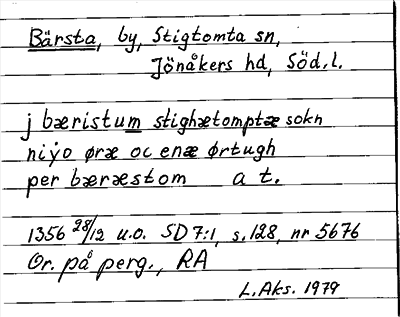 Bärsta, by, Stigtomta sn,
Jönåkers hd, Söd.l.
j bæristum stighætomptæ sokn
niẏo øræ oc enæ ørtugh
per bæræstom a t.
1356 28/12 u.o. SD 7:1, s.128, nr 5676
Or. på perg., RA
L.Aks. 1979